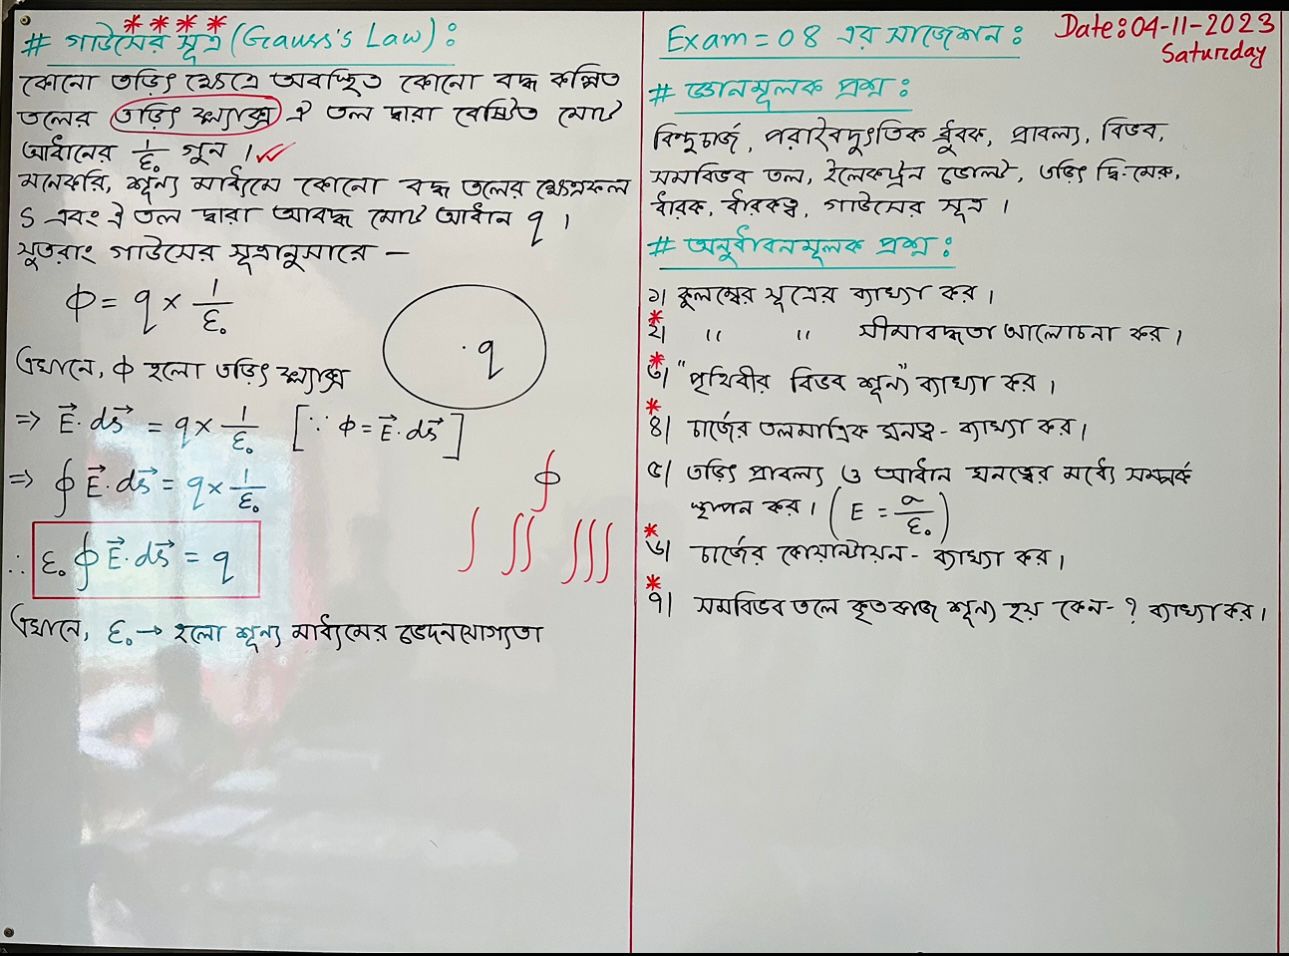 # গাউসের সূত্র (Gauss's Law) :
কোনো তড়িৎ ক্ষেত্রে অবস্থিত কোনো বদ্ধ কল্পিত
তলের তড়িৎ ফ্ল্যাক্স ঐ তল দ্বারা বেষ্টিত মোট
আধানের 1/ε₀ গুন ।
মনেকরি, শূন্য মাধ্যমে কোনো বদ্ধ তলের ক্ষেত্রফল
S এবং ঐ তল দ্বারা আবদ্ধ মোট আধান q ।
সুতরাং গাউসের সূত্রানুসারে —
ϕ = q × 1/ε₀
q
এখানে, ϕ হলো তড়িৎ ফ্ল্যাক্স
⇒ E⃗ · ds⃗ = q × 1/ε₀ [∵ ϕ = E⃗ · ds⃗]
⇒ ∮ E⃗ · ds⃗ = q × 1/ε₀
∮
∴ ε₀ ∮ E⃗ · ds⃗ = q
∫ ∫∫ ∫∫∫
এখানে, ε₀ → হলো শূন্য মাধ্যমের ভেদনযোগ্যতা
Date: 04-11-2023
Saturday
Exam = 08 এর সাজেশন :
# জ্ঞানমূলক প্রশ্ন :
বিন্দুচার্জ, পরাবৈদ্যুতিক ধ্রুবক, প্রাবল্য, বিভব,
সমবিভব তল, ইলেকট্রন ভোল্ট, তড়িৎ দ্বি-মেরু,
ধারক, ধারকত্ব, গাউসের সূত্র ।
# অনুধাবনমূলক প্রশ্ন :
১| কুলম্বের সূত্রের ব্যাখ্যা কর ।
* ২| " " সীমাবদ্ধতা আলোচনা কর ।
* ৩| "পৃথিবীর বিভব শূন্য" ব্যাখ্যা কর ।
* ৪| চার্জের তলমাত্রিক ঘনত্ব - ব্যাখ্যা কর ।
৫| তড়িৎ প্রাবল্য ও আধান ঘনত্বের মধ্যে সম্পর্ক
স্থাপন কর । (E = σ/ε₀)
* ৬| চার্জের কোয়ান্টায়ন - ব্যাখ্যা কর ।
* ৭| সমবিভব তলে কৃতকাজ শূন্য হয় কেন - ? ব্যাখ্যা কর ।